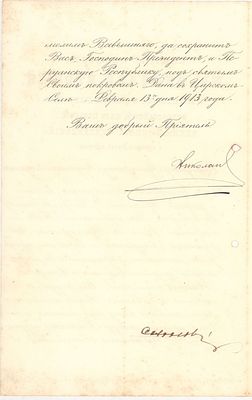 молимъ Всевышняго, да сохранитъ
Васъ, Господинъ Президентъ, и Пе-
руанскую Республику, подъ святымъ
Своимъ покровомъ. Дана въ Царскомъ
Селѣ. Февраля 13го дня 1913 года.
Вашъ добрый Пріятель
Николай
Сазоновъ